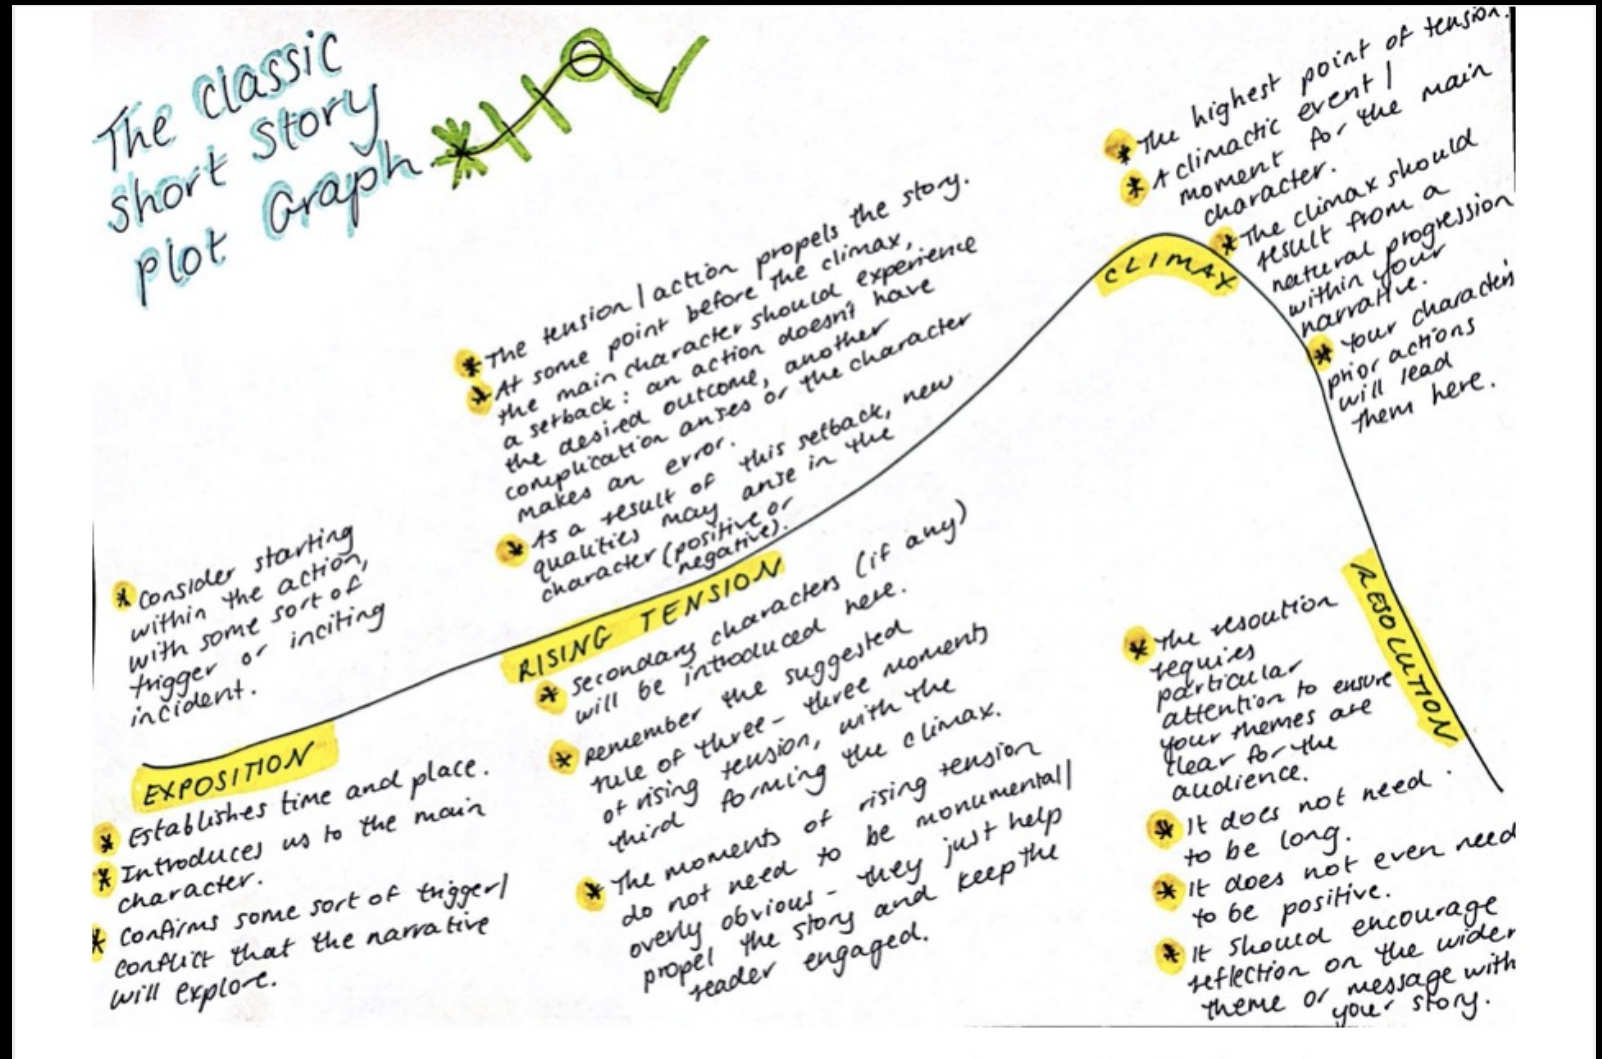 The Classic
Short Story
Plot Graph
* Consider starting
within the action,
with some sort of
trigger or inciting
incident.
EXPOSITION
* Establishes time and place.
* Introduces us to the main
character.
* Confirms some sort of trigger/
conflict that the narrative
will explore.
* The tension / action propels the story.
* At some point before the climax,
the main character should experience
a setback: an action doesn't have
the desired outcome, another
complication arises or the character
makes an error.
* As a result of this setback, new
qualities may arise in the
character (positive or
negative).
RISING TENSION
* Secondary characters (if any)
will be introduced here.
* Remember the suggested
rule of three - three moments
of rising tension, with the
third forming the climax.
* The moments of rising tension
do not need to be monumental/
overly obvious - they just help
propel the story and keep the
reader engaged.
* The highest point of tension.
* A climactic event /
moment for the main
character.
CLIMAX
* The climax should
result from a
natural progression
within your
narrative.
* Your characters
prior actions
will lead
them here.
RESOLUTION
* The resoution
requires
particular
attention to ensure
your themes are
clear for the
audience.
* It does not need
to be long.
* It does not even need
to be positive.
* It should encourage
reflection on the wider
theme or message with
your story.